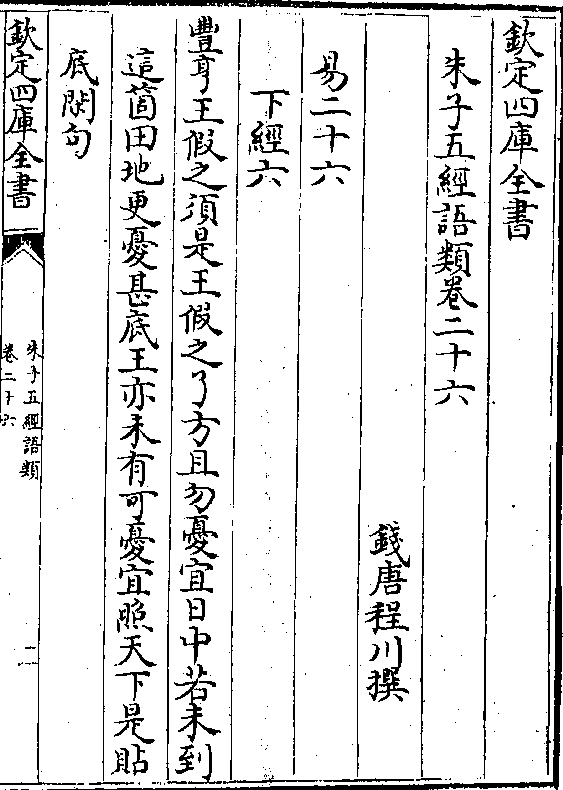 欽定四庫全書
朱子五經語類卷二十六
錢唐程川撰
易二十六
下經六
豐亨王假之須是王假之了方且勿憂宜日中若未到
這箇田地更憂甚底王亦未有可憂宜照天下是貼
底閑句
欽定四庫全書
朱子五經語類
卷二十六
二